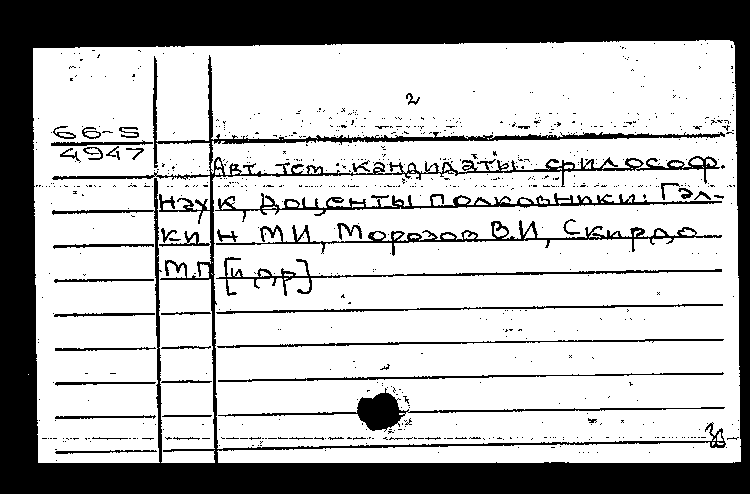 2
66-5
4947
Авт. тет: кандидаты философ.
наук, доценты полковники: Гал-
кин М.И, Морозов В.И, Скирдо
М.П [и др]